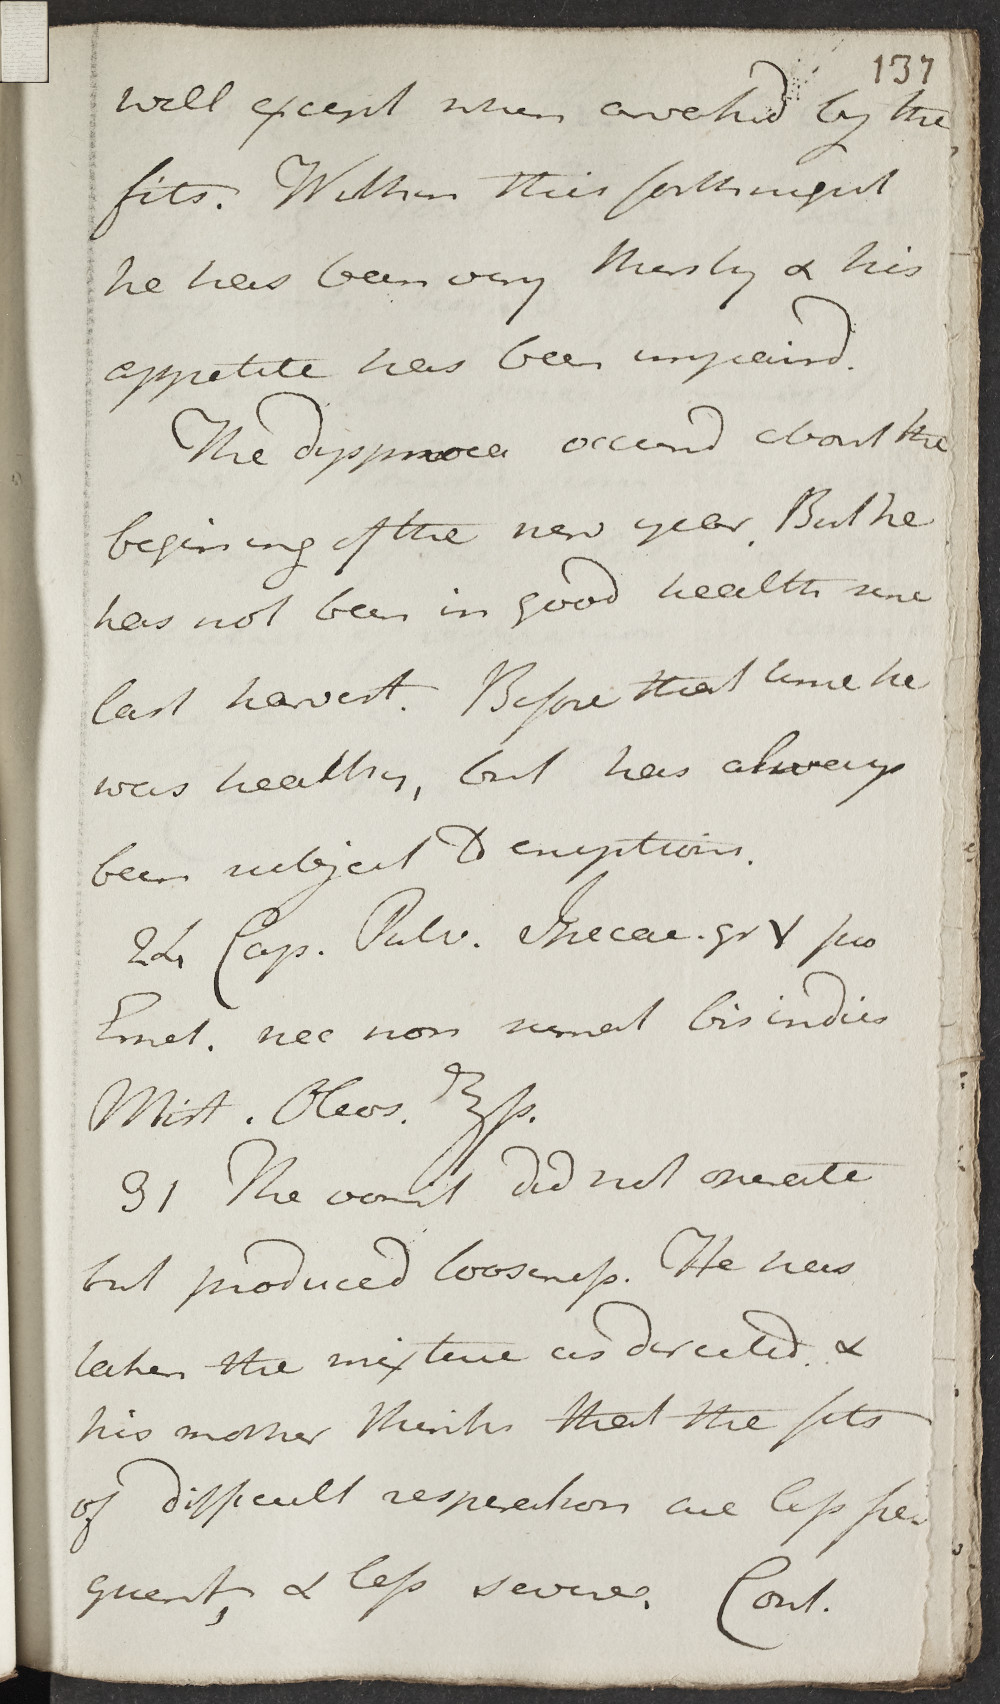 137
well except when awaked by the
fits. Within this forthnight
he has been very thirsty & his
appetite has been impaird.
The dyspnoea occurd about the
begining of the new year. But he
has not been in good health since
last harvest. Before that time he
was healthy, but has always
been subject to eruptions.
24 Cap. Pulv. Ipecac. gr V pro
Emet. nec non semel bis indies
Mist. Oleos. ℥ſs.
31 The vomit did not operate
but produced looseness. He has
taken the mixture as directed. &
his mother thinks that the fits
of difficult respiration are less fre
quent, & less severe. Cont.